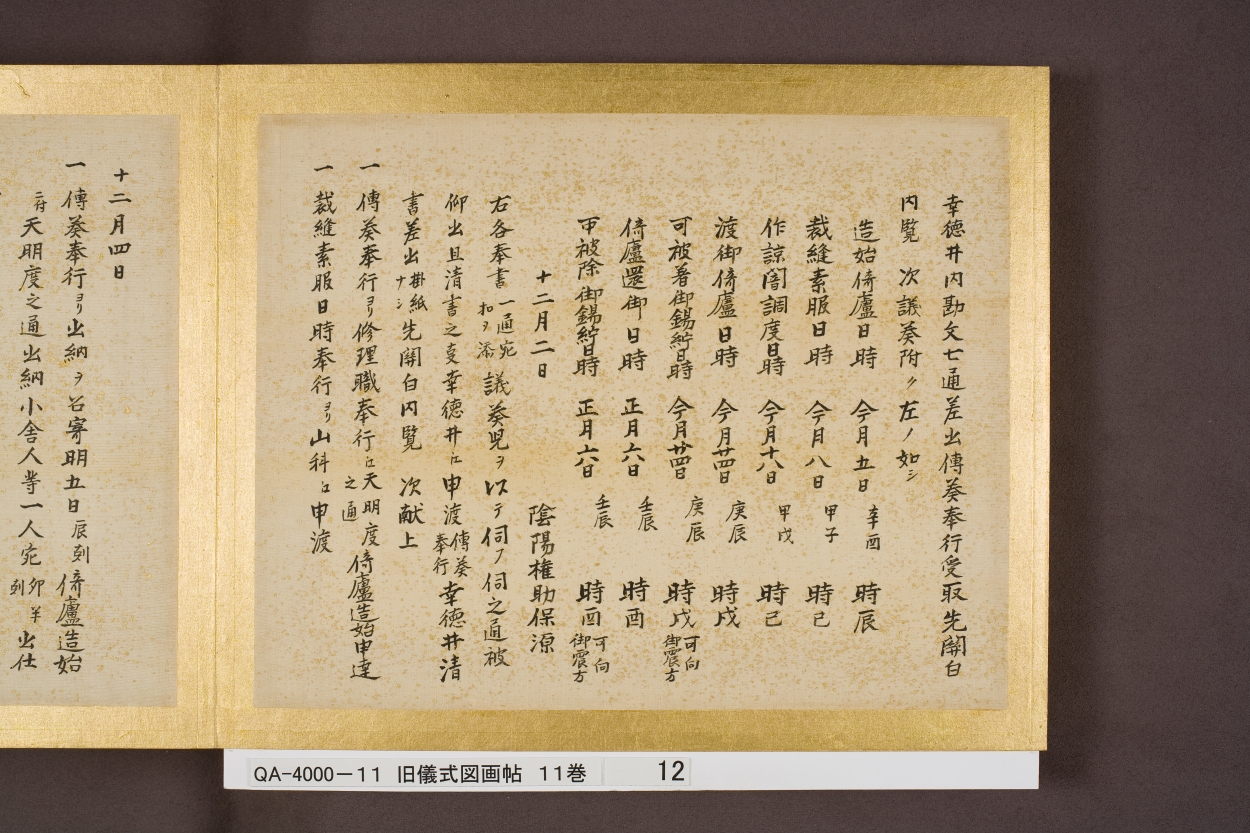 幸德井内勘文七通差出傳奏奉行受取先関白
内覧　次議奏附ク左ノ如シ
造始倚廬日時　今月五日　辛酉　時辰
裁縫素服日時　今月八日　甲子　時己
作諒闇調度日時　今月十八日　甲戌　時己
渡御倚廬日時　今月廿四日　庚辰　時戌
可被著御錫紵日時　今月廿四日　庚辰　時戌　可向御震方
倚廬還御日時　正月六日　壬辰　時酉
可被除御錫紵日時　正月六日　壬辰　時酉　可向御震方
十二月二日　陰陽権助保源
右各奉書一通宛扣ヲ添議奏児ヲ以テ伺フ伺之通被
仰出且清書之亊幸德井江申渡傳奏奉行幸德井清
書差出掛紙ナシ先関白内覧　次献上
一　傳奏奉行ヨリ修理職奉行江天明度之通倚廬造始申達
一　裁縫素服日時奉行ヨリ山科江申渡
十二月四日
一　傳奏奉行ヨリ出納ヲ召寄明五日辰刻倚廬造始
二付天明度之通出納小舎人等一人宛卯半刻出仕
QA-4000-11　旧儀式図画帖　11巻　12